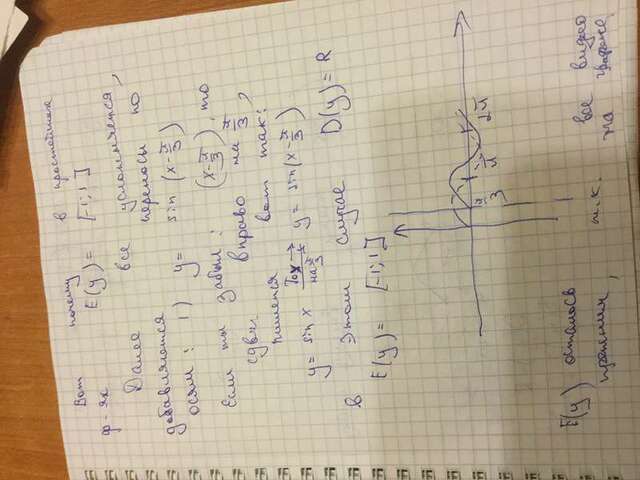 Вот почему в простейших
ф-ях E(y) = [-1;1]
Далее все усложняется,
добавляются переносы по
осям: 1) y = sin (x-π/3)
Если ты забыл: (x-π/3), то
сдвиг вправо на π/3,
пишется вот так:
y = sin x → на π/3 y = sin(x-π/3)
в этом случае D(y) = R
E(y) = [-1;1]
π/3 π 2π
E(y) осталось все видно
прежним, т.к. на графике